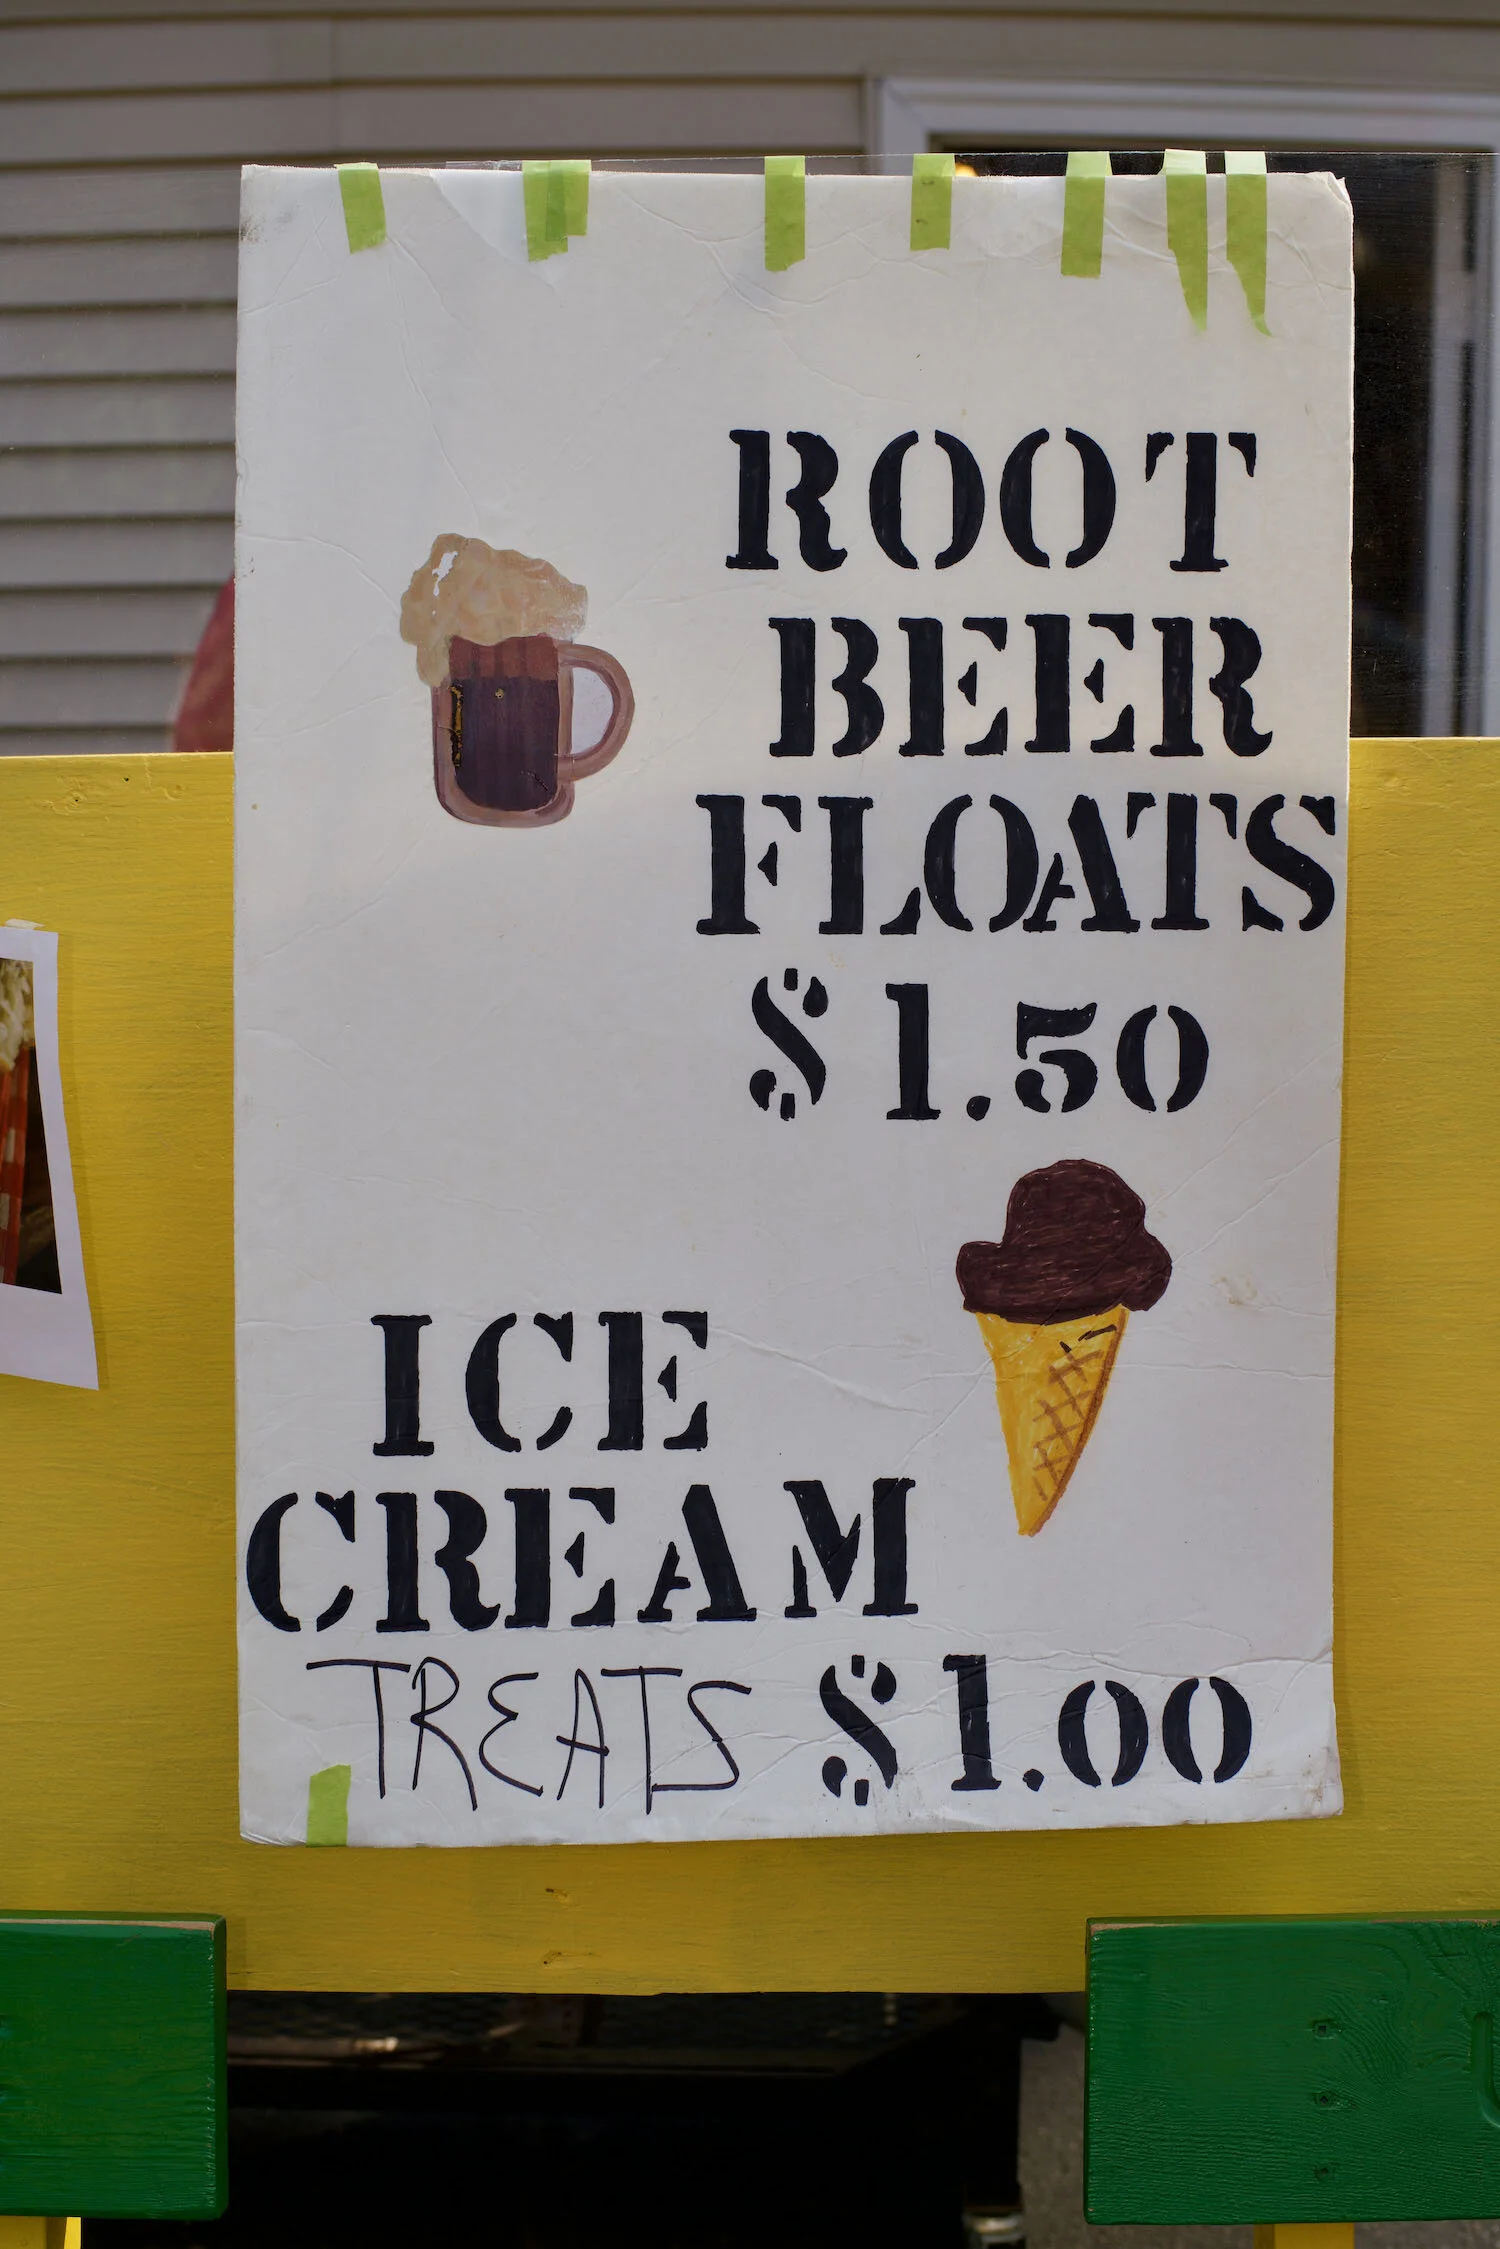 ROOT
BEER
FLOATS
$1.50
ICE
CREAM
TREATS $1.00